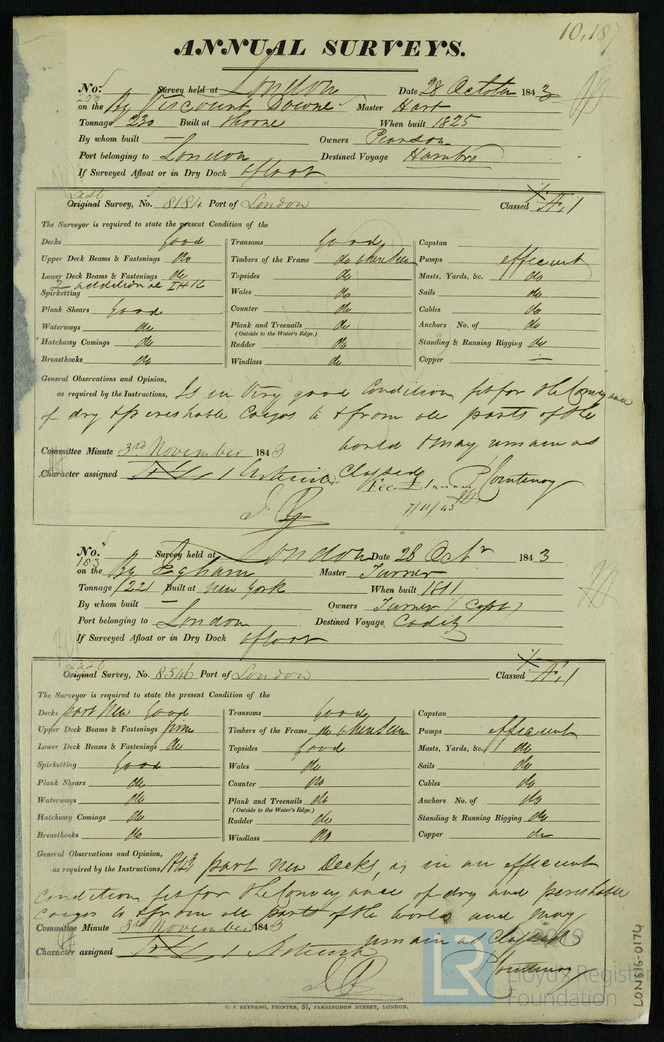 10,187
ANNUAL SURVEYS.
No. 203 Survey held at London Date 28 October 1843
on the Bg Viscount Downe Master Hart
Tonnage 230 Built at Thorne When built 1825
By whom built — Owners Pearson
Port belonging to London Destined Voyage Hambro
If Surveyed Afloat or in Dry Dock Afloat
Last
Original Survey, No. 8184 Port of London Classed Æ 1
The Surveyor is required to state the present Condition of the
Decks Good Transoms Good Capstan
Upper Deck Beams & Fastenings do Timbers of the Frame do when seen Pumps efficient
Lower Deck Beams & Fastenings do Topsides do Masts, Yards, &c. do
2 additional IH K
Spirketting Wales do Sails do
Plank Shears Good Counter do Cables do
Waterways do Plank and Treenails do Anchors No. of do
(Outside to the Water's Edge.)
Hatchway Comings do Rudder do Standing & Running Rigging do
Breasthooks do Windlass do Copper —
General Observations and Opinion,
as required by the Instructions, Is in Very good Condition fit for the Conveyance
of dry & perishable Cargos to & from all parts of the
world & may remain as
Committee Minute 3rd November 1843
Classed
Character assigned Æ 1 P Courtenay
Fee £
7/11/43
No. 183 Survey held at London Date 28 Octr 1843
on the Bg Egham Master Turner
Tonnage 221 Built at New York When built 1811
By whom built — Owners Turner (Capt)
Port belonging to London Destined Voyage Cadiz
If Surveyed Afloat or in Dry Dock Afloat
Last
Original Survey, No. 8546 Port of London Classed Æ 1
The Surveyor is required to state the present Condition of the
Decks part New Good Transoms Good Capstan
Upper Deck Beams & Fastenings firm Timbers of the Frame do when seen Pumps efficient
Lower Deck Beams & Fastenings do Topsides Good Masts, Yards, &c. do
Spirketting Good Wales do Sails do
Plank Shears do Counter do Cables do
Waterways do Plank and Treenails do Anchors No. of do
(Outside to the Water's Edge.)
Hatchway Comings do Rudder do Standing & Running Rigging do
Breasthooks do Windlass do Copper do
General Observations and Opinion,
as required by the Instructions, 1843 part New Decks, is in an efficient
Condition fit for the Conveyance of dry and perishable
Cargos to & from all parts of the World and may
Committee Minute 3rd November 1843
remain as Classed
Character assigned Æ 1 P Courtenay
C. F. SEYFANG, PRINTER, 57, FARRINGDON STREET, LONDON.
© 2019
LR
Lloyd's Register
Foundation
LON616-0174